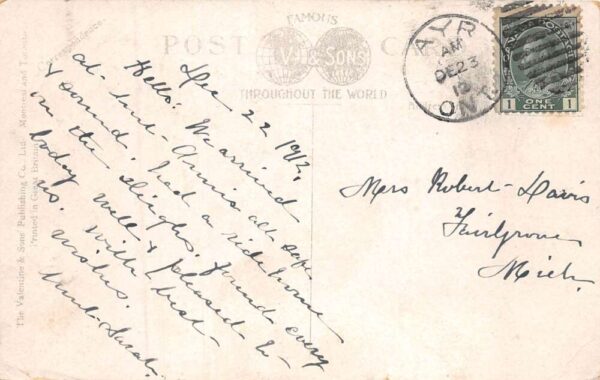 FAMOUS
POST CARD
V & SONS
THROUGHOUT THE WORLD
Correspondence.
The Valentine & Sons Publishing Co., Ltd. Montreal and Toronto
Printed in Great Britain
AYR
AM
DE 23
12
ONT
CANADA POSTAGE
1 ONE CENT 1
Dec 22 1912.
Hello! We arrived
at Aunt Annie's all safe
& sound. Had a ride home
in the sleighs. Found every
body well & pleased to
us. With best
wishes.
Aunt Sarah.
Mrs Robert Davis
Fairgrove
Mich.